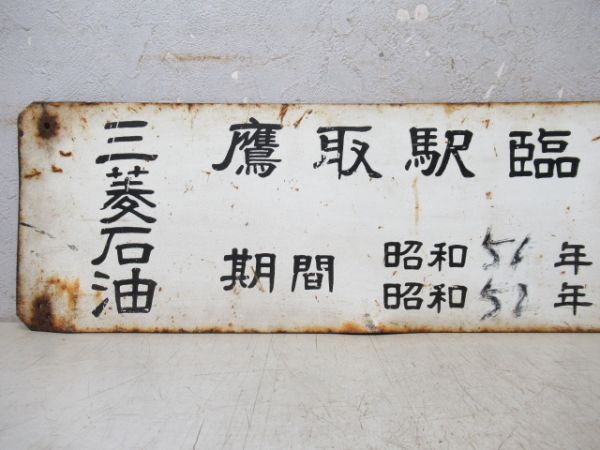 三菱石油
鷹取駅臨
期間
昭和56年
昭和57年